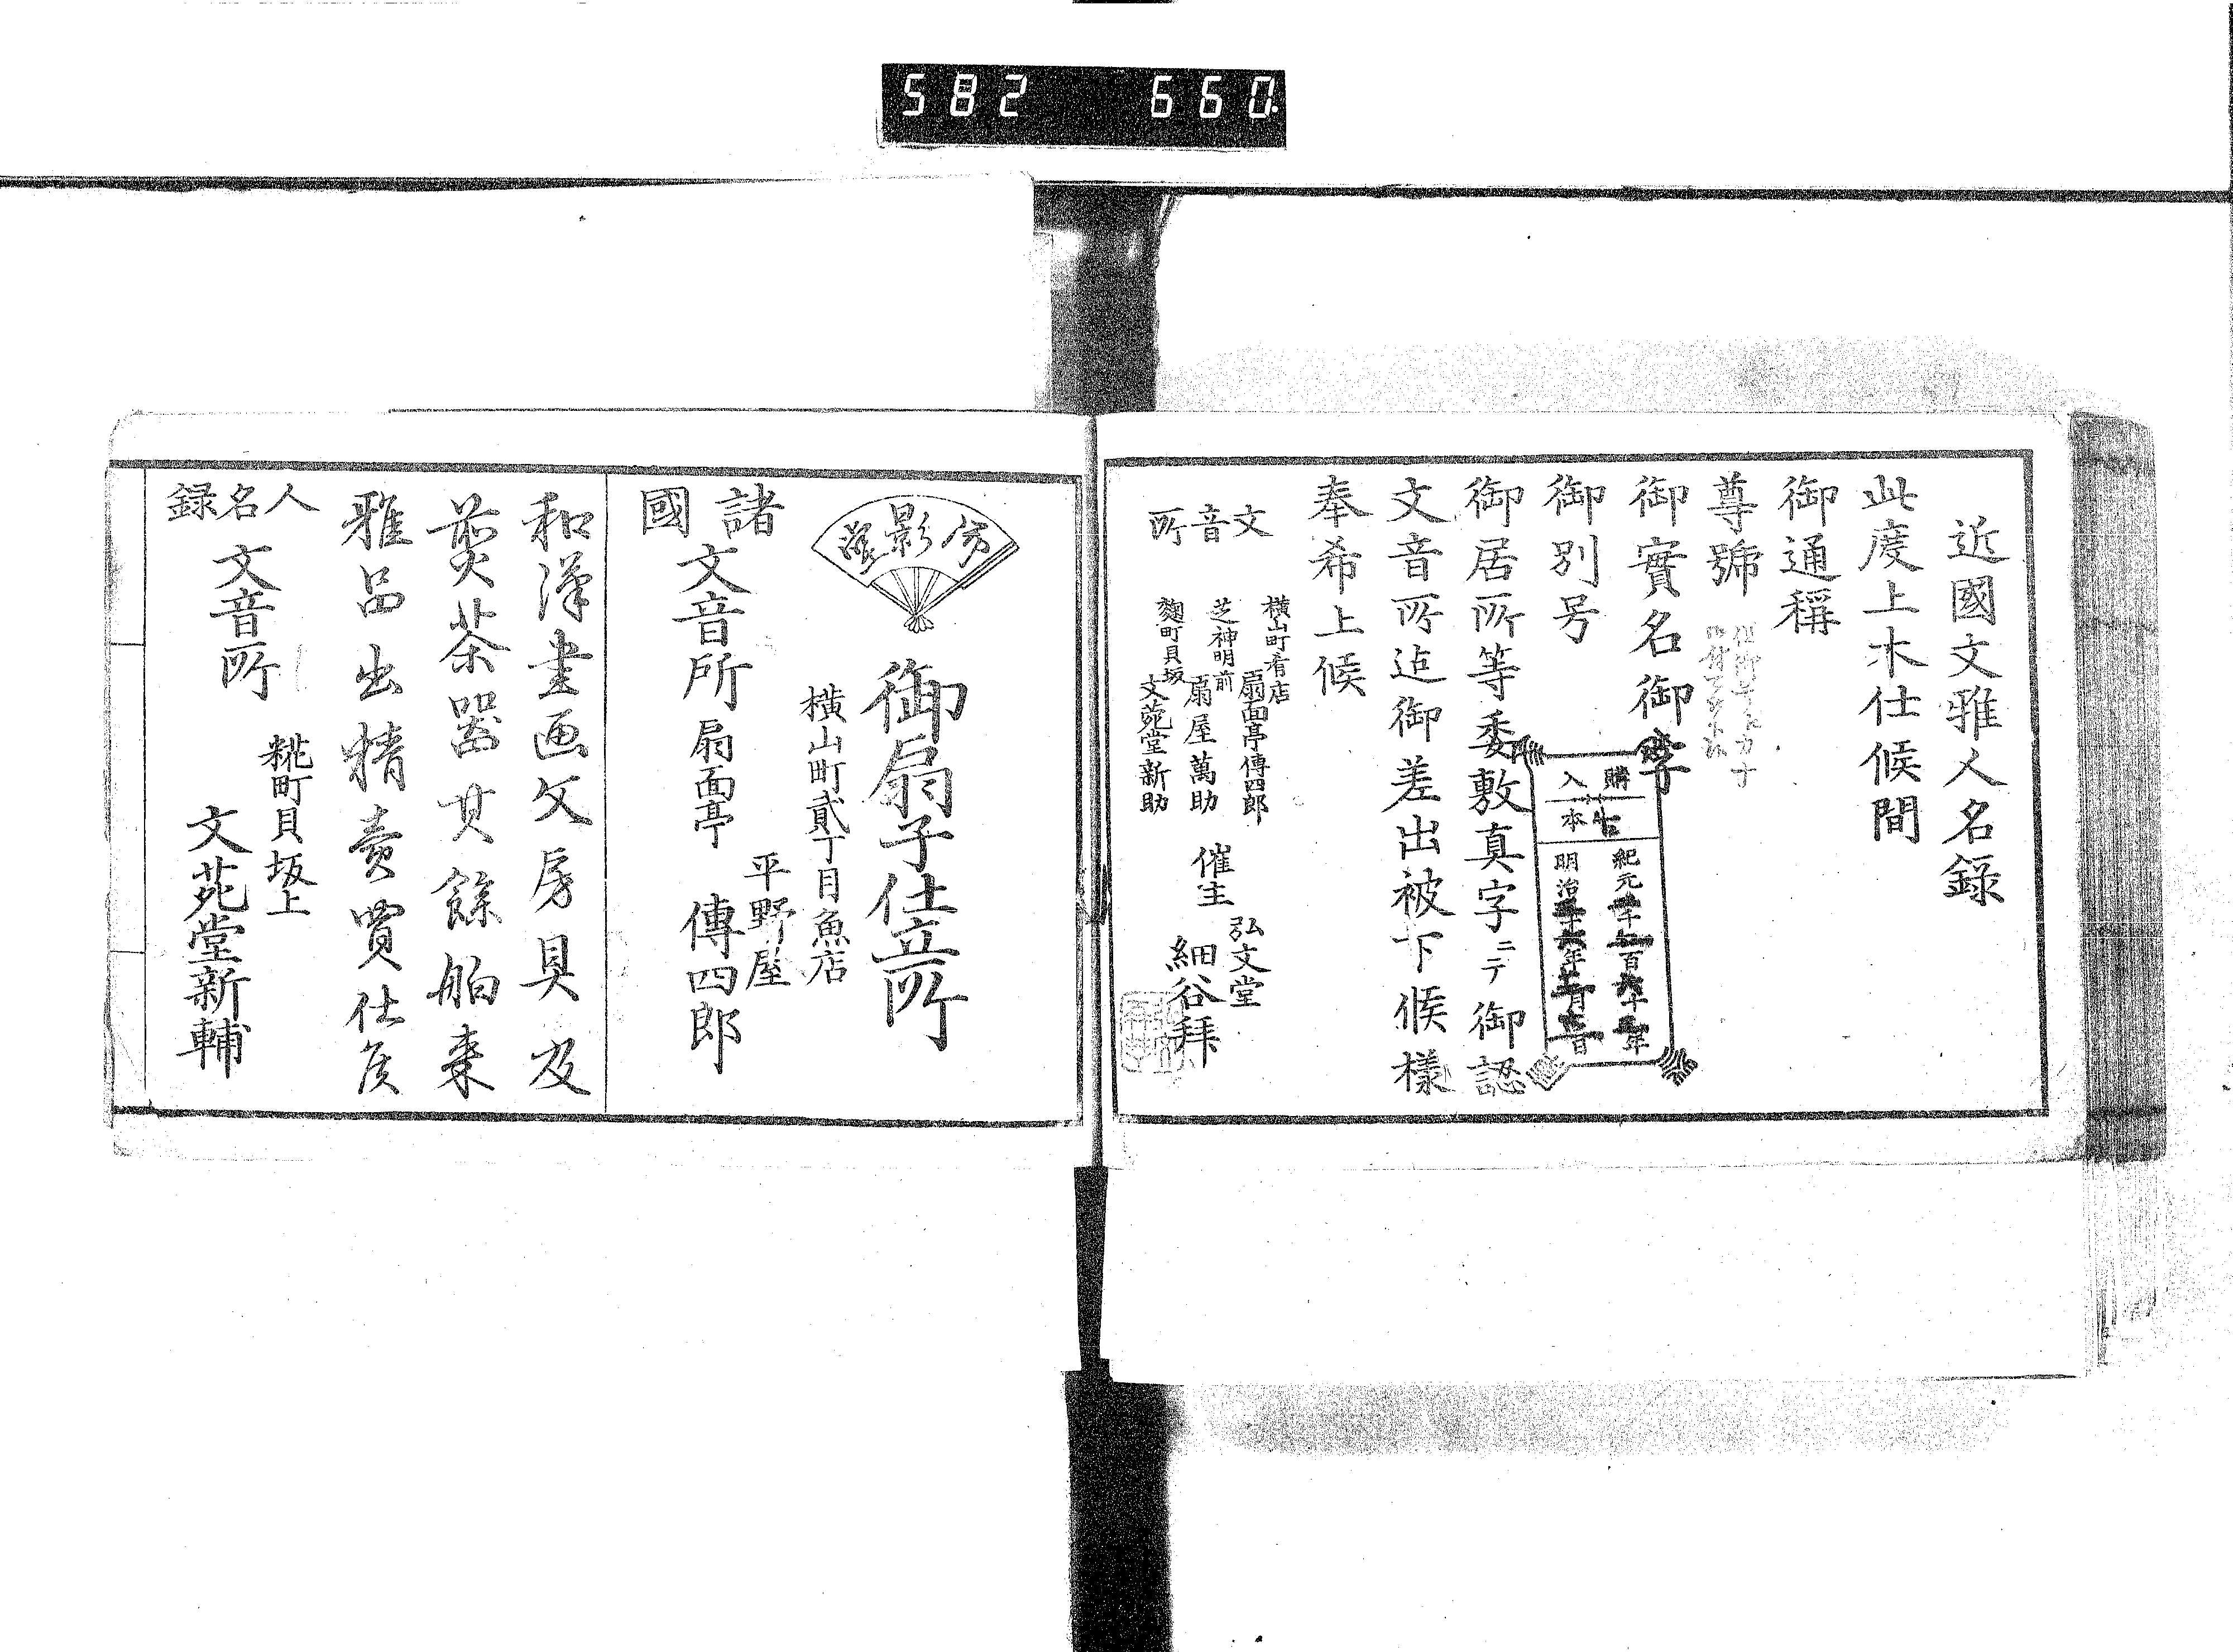 582 660
近國文雅人名録
此度上木仕候間
御通稱
尊號
御實名御字
御別号
御居所等委敷真字ニテ御認
文音所迠御差出被下候様
奉希上候
文音所
横山町肴店
扇面亭傳四郎
芝神明前
扇屋萬助
麹町貝坂
文苑堂新助
催主
弘文堂
細谷拜
購入
古本
紀元二千五百六十三年
明治三十六年
月
日
仿影堂
御扇子仕立所
横山町貳丁目魚店
諸國
文音所
扇面亭
平野屋
傳四郎
和漢書画文房具及
煎茶器其餘舶来
雅品出精賣買仕候
人名録
文音所
糀町貝坂上
文苑堂新輔